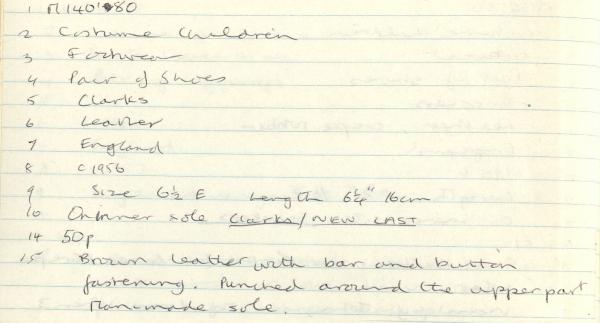 1 M140'80
2 Costume Children
3 Footwear
4 Pair of Shoes
5 Clarks
6 Leather
7 England
8 c1956
9 Size 6½ E Length 6¼" 16cm
10 On inner sole Clarks/NEW LAST
14 50p
15 Brown leather with bar and button
fastening. Punched around the upper part
Man-made sole.